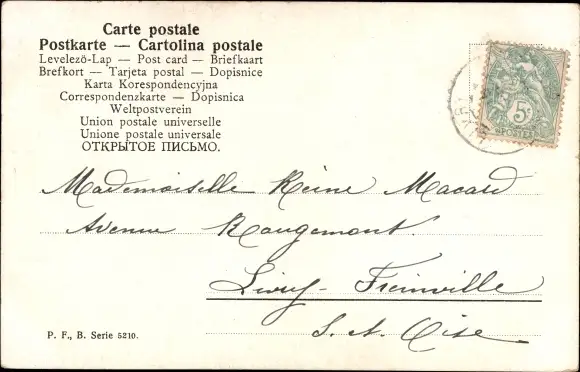 Carte postale
Postkarte — Cartolina postale
Levelező-Lap — Post card — Briefkaart
Brefkort — Tarjeta postal — Dopisnice
Karta Korespondencyjna
Correspondenzkarte — Dopisnica
Weltpostverein
Union postale universelle
Unione postale universale
ОТКРЫТОЕ ПИСЬМО.
5c
POSTES
Mademoiselle Reine Macard
Avenue Rougemont.
Livry-Freinville
S. et. Oise
P. F., B. Serie 5210.